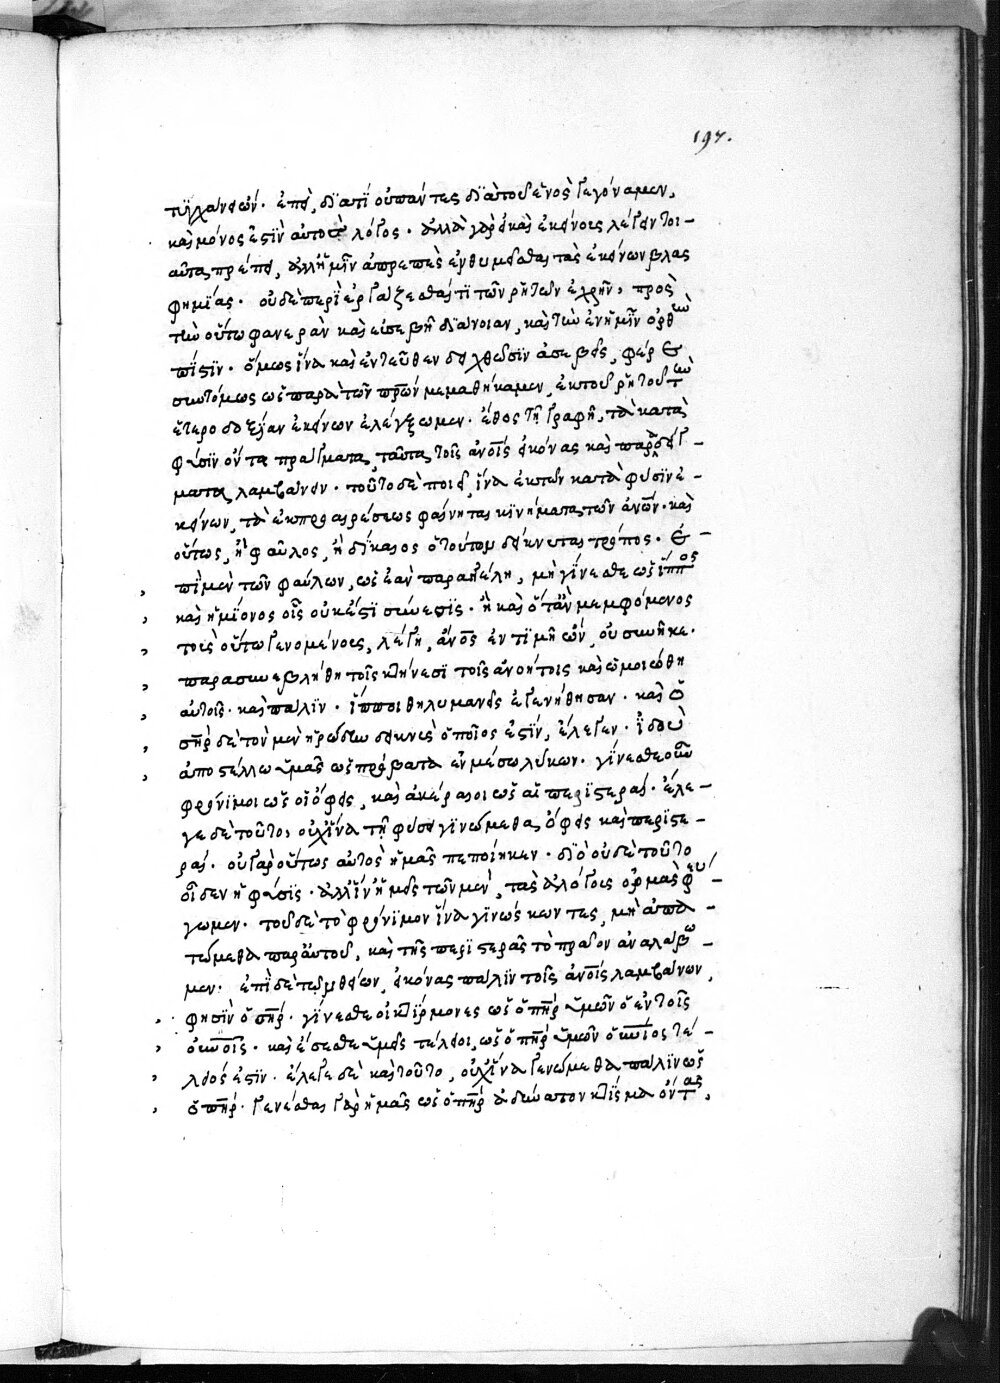 197.
τυγχάνειν. ἐπεὶ, διατί οἱ πάντες διὰ τοῦ ἑνὸς γεγόναμεν,
καὶ μόνος ἐστὶν αὐτὸς ὁ λόγος. ἀλλὰ γὰρ εἰ καὶ ἐκείνοις λέγειν τοι-
αῦτα πρέπει, ἀλλ' ἡμῖν ἀπρεπὲς ἐνθυμεῖσθαι τὰς ἐκείνων βλας
φημίας. οὐδὲ περιεργάζεσθαί τι τῶν ῥητῶν ἐχρῆν, πρὸς
τὴν οὕτω φανερὰν καὶ εὐσεβῆ διάνοιαν, καὶ τὴν ἐν ἡμῖν ὀρθὴν
πίστιν. ὅμως ἵνα καὶ ἐντεῦθεν δειχθῶσιν ἀσεβεῖς, φέρε
συντόμως ὡς παρὰ τῶν πρων μεμαθήκαμεν, ἐκ τοῦ ῥητοῦ τὴν
ἑτεροδοξίαν ἐκείνων ἐλέγξωμεν. ἔθος τῇ γραφῇ, τὰ κατὰ
φύσιν ὄντα πράγματα, ταῦτα τοῖς ἀνοις εἰκόνας καὶ παραδείγ-
ματα λαμβάνειν. τοῦτο δὲ ποιεῖ, ἵνα ἐκ τῶν κατὰ φύσιν ἐ-
κείνων, τὰ ἐκ προαιρέσεως φαίνηται κινήματα τῶν ἀνων. καὶ
οὕτως, ἢ φαῦλος, ἢ δίκαιος ὁ τούτων δείκνυται τρόπος. ἐ-
πὶ μὲν τῶν φαύλων, ὡς ἐὰν παραγγέλη, μὴ γίνεσθε ὡς ἵππος
καὶ ἡμίονος οἷς οὐκ ἔστι σύνεσις. ἢ καὶ ὅταν μεμφόμενος
τοὺς οὕτω γενομένους, λέγη, ἀνος ἐν τιμῇ ὢν, οὐ συνῆκε.
παρασυνεβλήθη τοῖς κτήνεσι τοῖς ἀνοήτοις καὶ ὡμοιώθη
αὐτοῖς. καὶ πάλιν. ἵπποι θηλυμανεῖς ἐγενήθησαν. καὶ ὁ
σηρ δὲ τὸν μὲν ἡρώδην δεικνὺς ὁποῖος ἐστὶν, ἔλεγεν. ἰδοὺ
ἀποστέλλω ὑμᾶς ὡς πρόβατα ἐν μέσω λύκων. γίνεσθε οὖν
φρόνιμοι ὡς οἱ ὄφεις, καὶ ἀκέραιοι ὡς αἱ περιστεραί. ἔλε-
γε δὲ τοῦτο, οὐχ ἵνα τῇ φύσει γινώμεθα ὄφεις καὶ περιστε-
ραί. οὐ γὰρ οὕτως αὐτὸς ἡμᾶς πεποίηκεν. διὸ οὐδὲ τοῦτο
οἶδεν ἡ φύσις. ἀλλ' ἵν' ἡμεῖς τῶν μὲν, τὰς ἀλόγους ὁρμὰς φεύ-
γωμεν. τοῦ δὲ τὸ φρόνιμον ἵνα γινώσκοντες, μὴ ἀπα-
τώμεθα παρ' αὐτοῦ, καὶ τῆς περιστερᾶς τὸ πρᾶον ἀναλάβω-
μεν. ἐπὶ δὲ τῶν θείων, εἰκόνας πάλιν τοῖς ἀνοις λαμβάνων,
φησὶν ὁ σηρ. γίνεσθε οἰκτίρμονες ὡς ὁ πηρ ὑμῶν ὁ ἐν τοῖς
οὐνοις. καὶ ἔσεσθε ὑμεῖς τέλειοι, ὡς ὁ πηρ ὑμῶν ὁ οὐνιος τέ-
λειός ἐστιν. ἔλεγε δὲ καὶ τοῦτο, οὐχ ἵνα γενώμεθα πάλιν ὡς
ὁ πηρ. γενέσθαι γὰρ ἡμᾶς ὡς ὁ πηρ ἀδύνατον κτίσμα ὄντας,